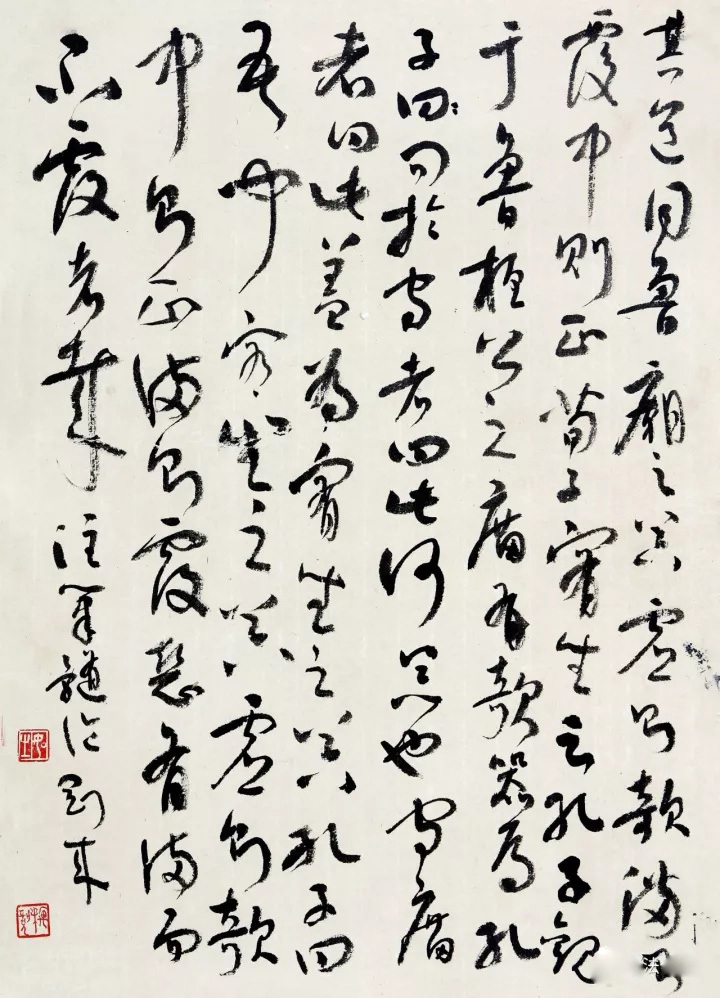 其道同魯廟之器虛則欹滿則
覆中則正荀子宥坐云孔子觀
于魯桓公之廟有欹器焉孔
子曰問於守者曰此何器也守廟
者曰此蓋為宥坐之器孔子曰
吾聞宥坐之器虛則欹
中則正滿則覆惡有滿而
不覆者哉 注筆髓論 劉